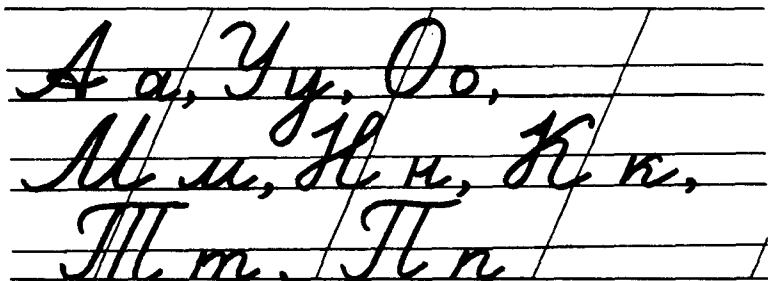 А а, У у, О о,
М м, Н н, К к,
Т т, П п